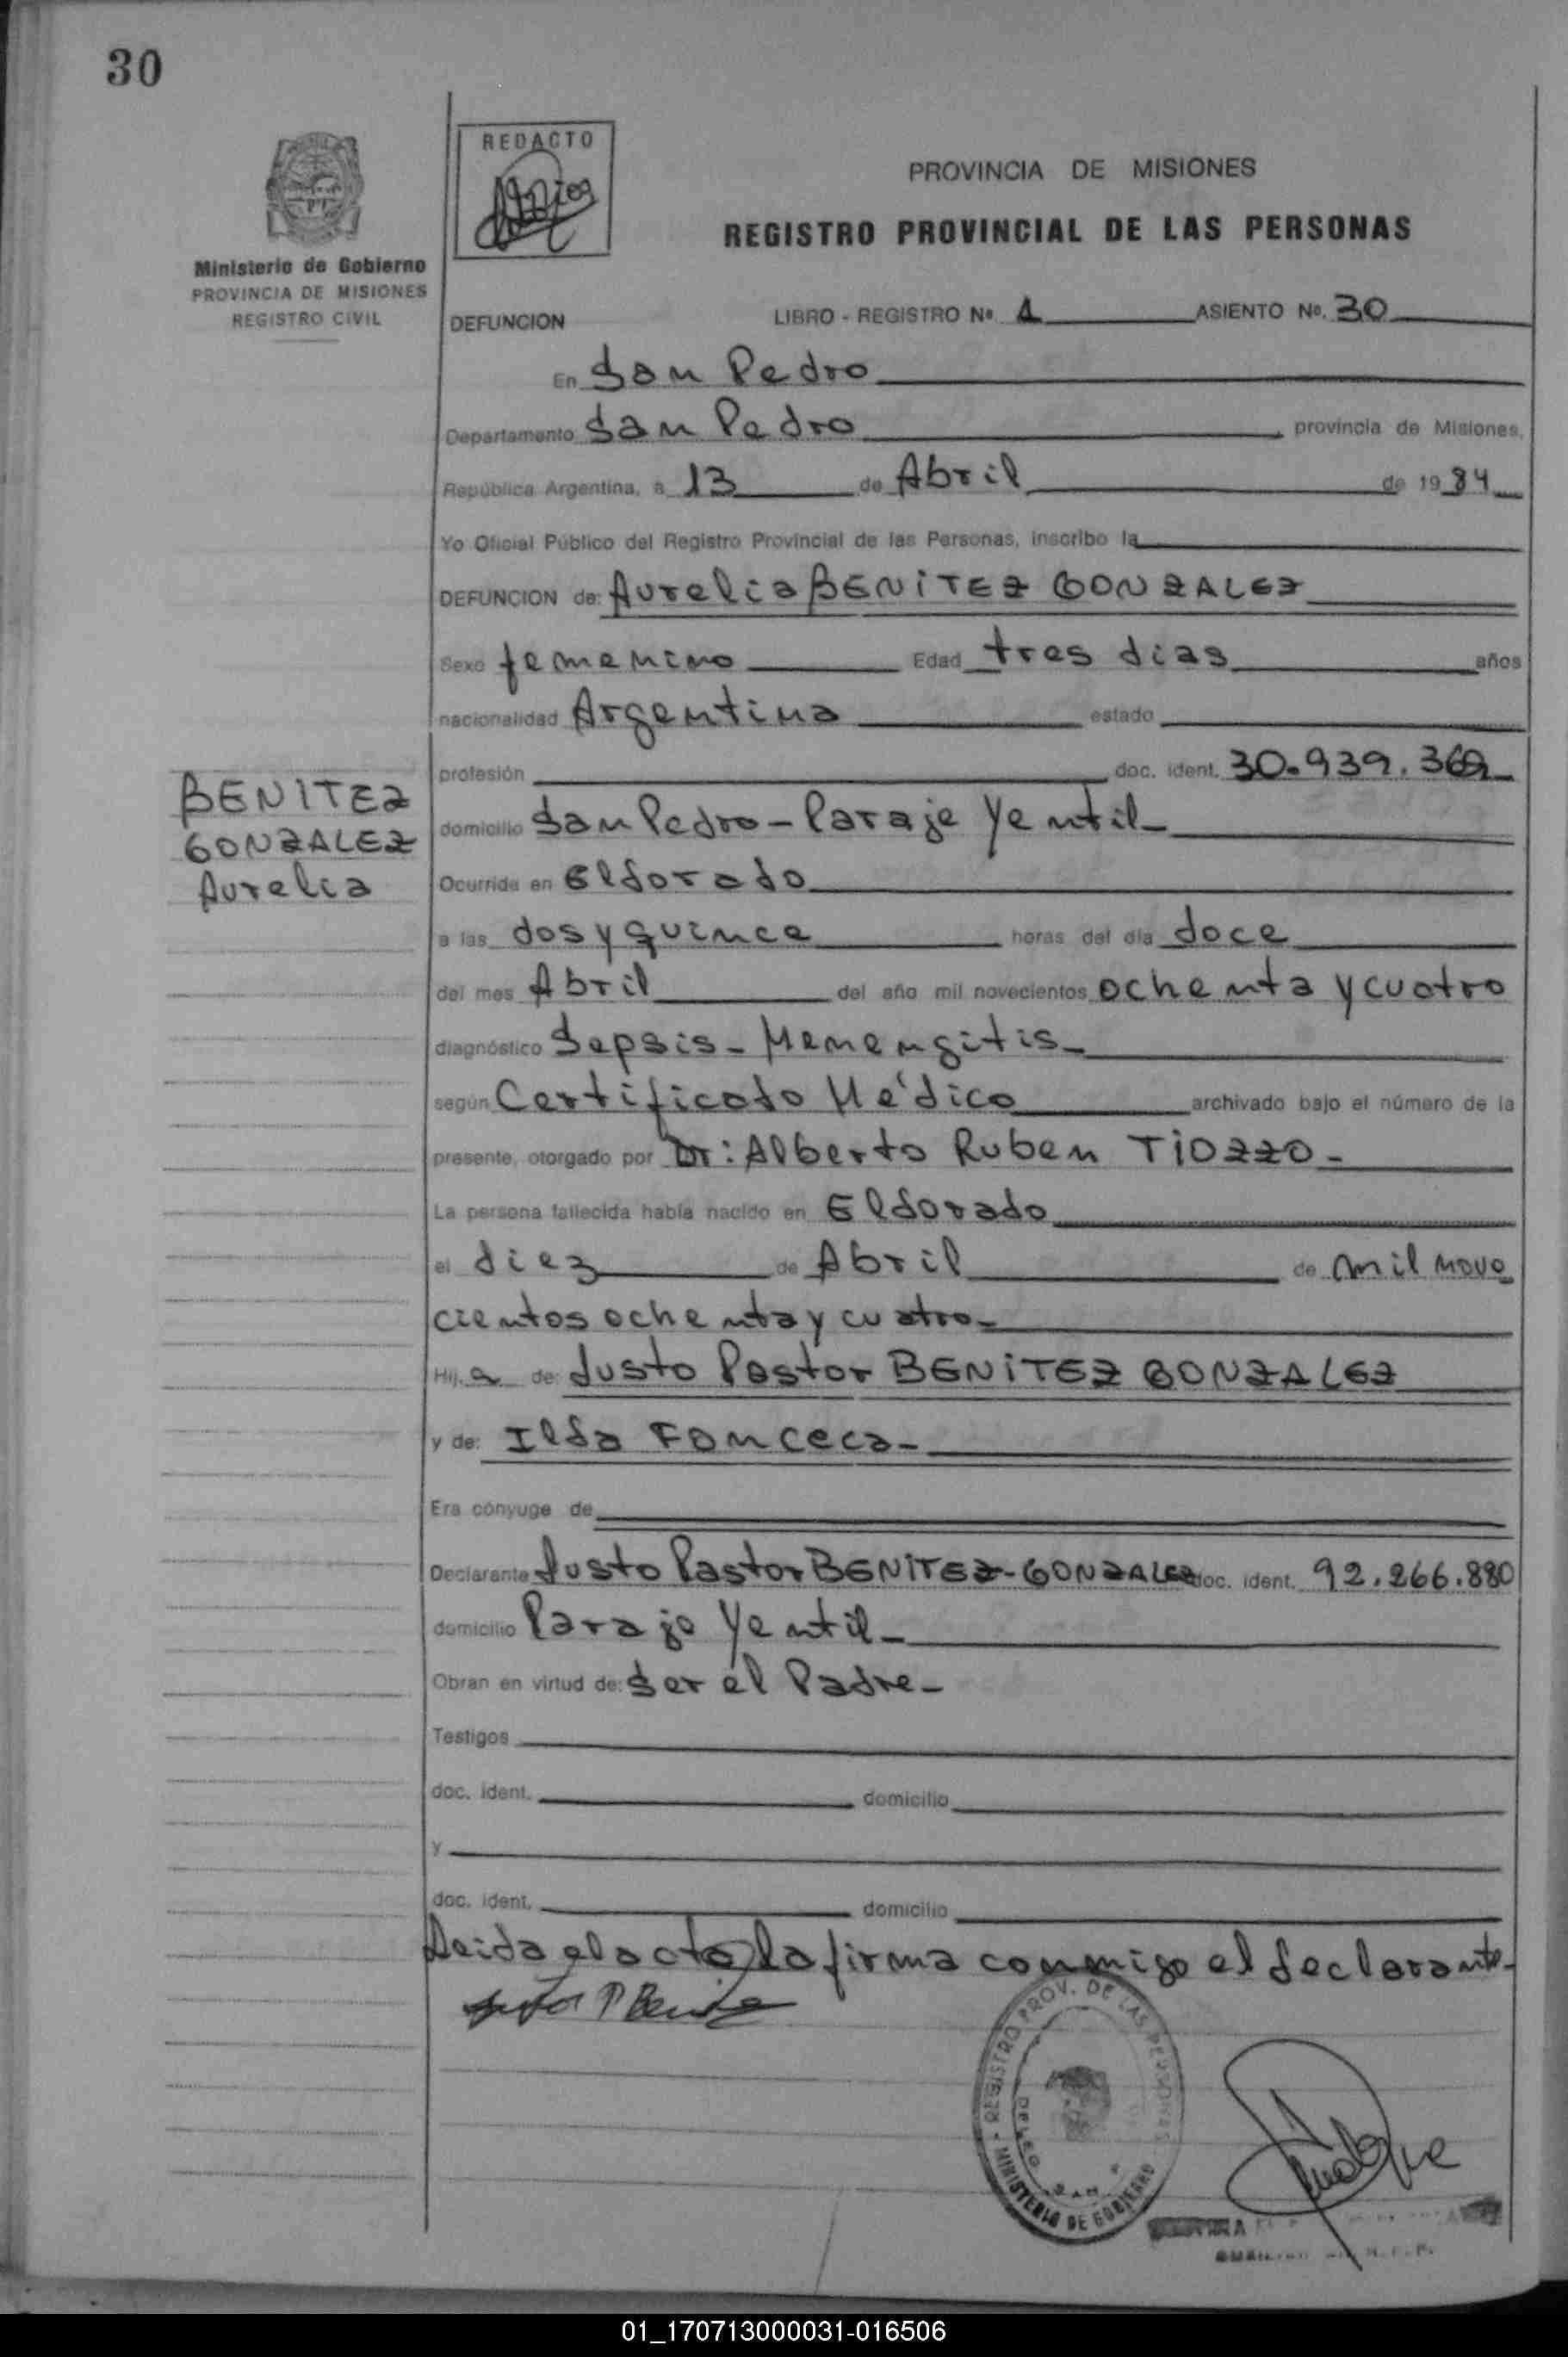 30
REDACTO
PROVINCIA DE MISIONES
REGISTRO PROVINCIAL DE LAS PERSONAS
Ministerio de Gobierno
PROVINCIA DE MISIONES
REGISTRO CIVIL
DEFUNCION LIBRO - REGISTRO Nº 1 ASIENTO Nº. 30
En San Pedro
Departamento San Pedro, provincia de Misiones,
República Argentina, a 13 de Abril de 1984
Yo Oficial Público del Registro Provincial de las Personas, inscribo la
DEFUNCION de: Aurelia BENITEZ GONZALEZ
Sexo femenino Edad tres dias años
nacionalidad Argentina estado
profesión doc. ident. 30.939.369
BENITEZ
GONZALEZ
Aurelia
domicilio San Pedro - Paraje Yentil -
Ocurrida en Eldorado
a las dos y quince horas del día doce
del mes Abril del año mil novecientos ochenta y cuatro
diagnóstico Sepsis - Menengitis -
según Certificado Médico archivado bajo el número de la
presente, otorgado por Dr: Alberto Ruben TIOZZO -
La persona fallecida había nacido en Eldorado
el diez de Abril de mil nove
cientos ochenta y cuatro -
Hij a de: Justo Pastor BENITEZ GONZALEZ
y de: Ilda Fonceca -
Era cónyuge de
Declarante Justo Pastor BENITEZ - GONZALEZ doc. ident. 92.266.880
domicilio Paraje Yentil -
Obran en virtud de: Ser el Padre -
Testigos
doc. ident. domicilio
y
doc. ident. domicilio
Leida el acta, la firma conmigo el declarante -
REGISTRO PROV. DE LAS PERSONAS
MINISTERIO DE GOBIERNO
01_170713000031-016506